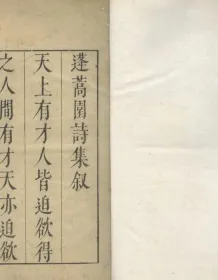 蓬蒿園詩集叙
天上有才人皆迫欲得
之人間有才天亦迫欲